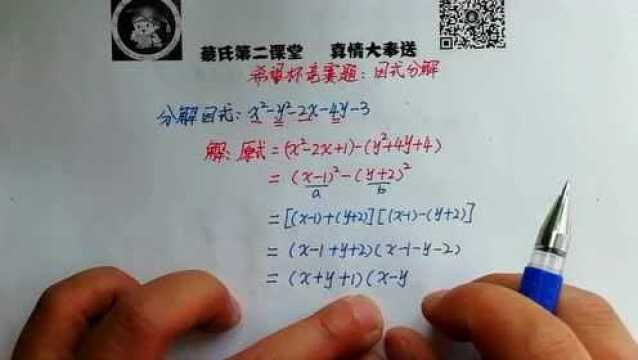 蔡氏第二课堂 真情大奉送
希望杯竞赛题:因式分解
分解因式:x²-y²-2x-4y-3
解:原式=(x²-2x+1)-(y²+4y+4)
=(x-1)²-(y+2)²
a b
=[(x-1)+(y+2)][(x-1)-(y+2)]
=(x-1+y+2)(x-1-y-2)
=(x+y+1)(x-y